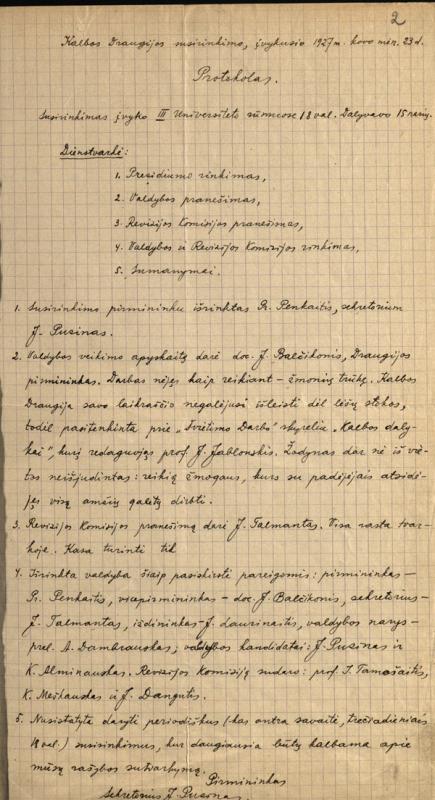 2
Kalbos Draugijos susirinkimo, įvykusio 1927 m. kovo mėn. 23 d.
Protokolas.
Susirinkimas įvyko III Universiteto rūmuose 18 val. Dalyvavo 15 narių.
Dienotvarkė:
1. Prezidiumo rinkimas,
2. Valdybos pranešimas,
3. Revizijos Komisijos pranešimas,
4. Valdybos ir Revizijos Komisijos rinkimas,
5. Sumanymai.
1. Susirinkimo pirmininku išrinktas Pr. Penkaitis, sekretorium
J. Pusinas.
2. Valdybos veikimo apyskaitą darė doc. J. Balčikonis, Draugijos
pirmininkas. Darbas nėjęs kaip reikiant – žmonių trūkę. Kalbos
Draugija savo laikraščio negalėjusi išleisti dėl lėšų stokos,
todėl pasitenkinta prie „Švietimo Darbo" skyreliu „Kalbos daly-
kai", kurį redaguojąs prof. J. Jablonskis. Žodynas dar nė iš vie-
tos neišjudintas: reikią žmogaus, kurs su padėjėjais atsidė-
jęs visą amžių galėtų dirbti.
3. Revizijos Komisijos pranešimą darė J. Talmantas. Visa rasta tvar-
koje. Kasa turinti tik
4. Išrinkta valdyba šiaip pasiskirstė pareigomis: pirmininkas –
Pr. Penkaitis, vicepirmininkas – doc. J. Balčikonis, sekretorius –
J. Talmantas, iždininkas – J. Laurinaitis, valdybos narys –
prel. A. Dambrauskas; valdybos kandidatai: J. Pusinas ir
K. Alminauskas. Revizijos Komisiją sudaro: prof. I. Tamošaitis,
K. Meškauskas ir J. Dangutis.
5. Nusistatyta daryti periodiškus (kas antra savaitė, trečiadieniais
18 val.) susirinkimus, kur daugiausia būtų kalbama apie
mūsų rašybos sutvarkymą.
Pirmininkas
Sekretorius J. Pusinas.